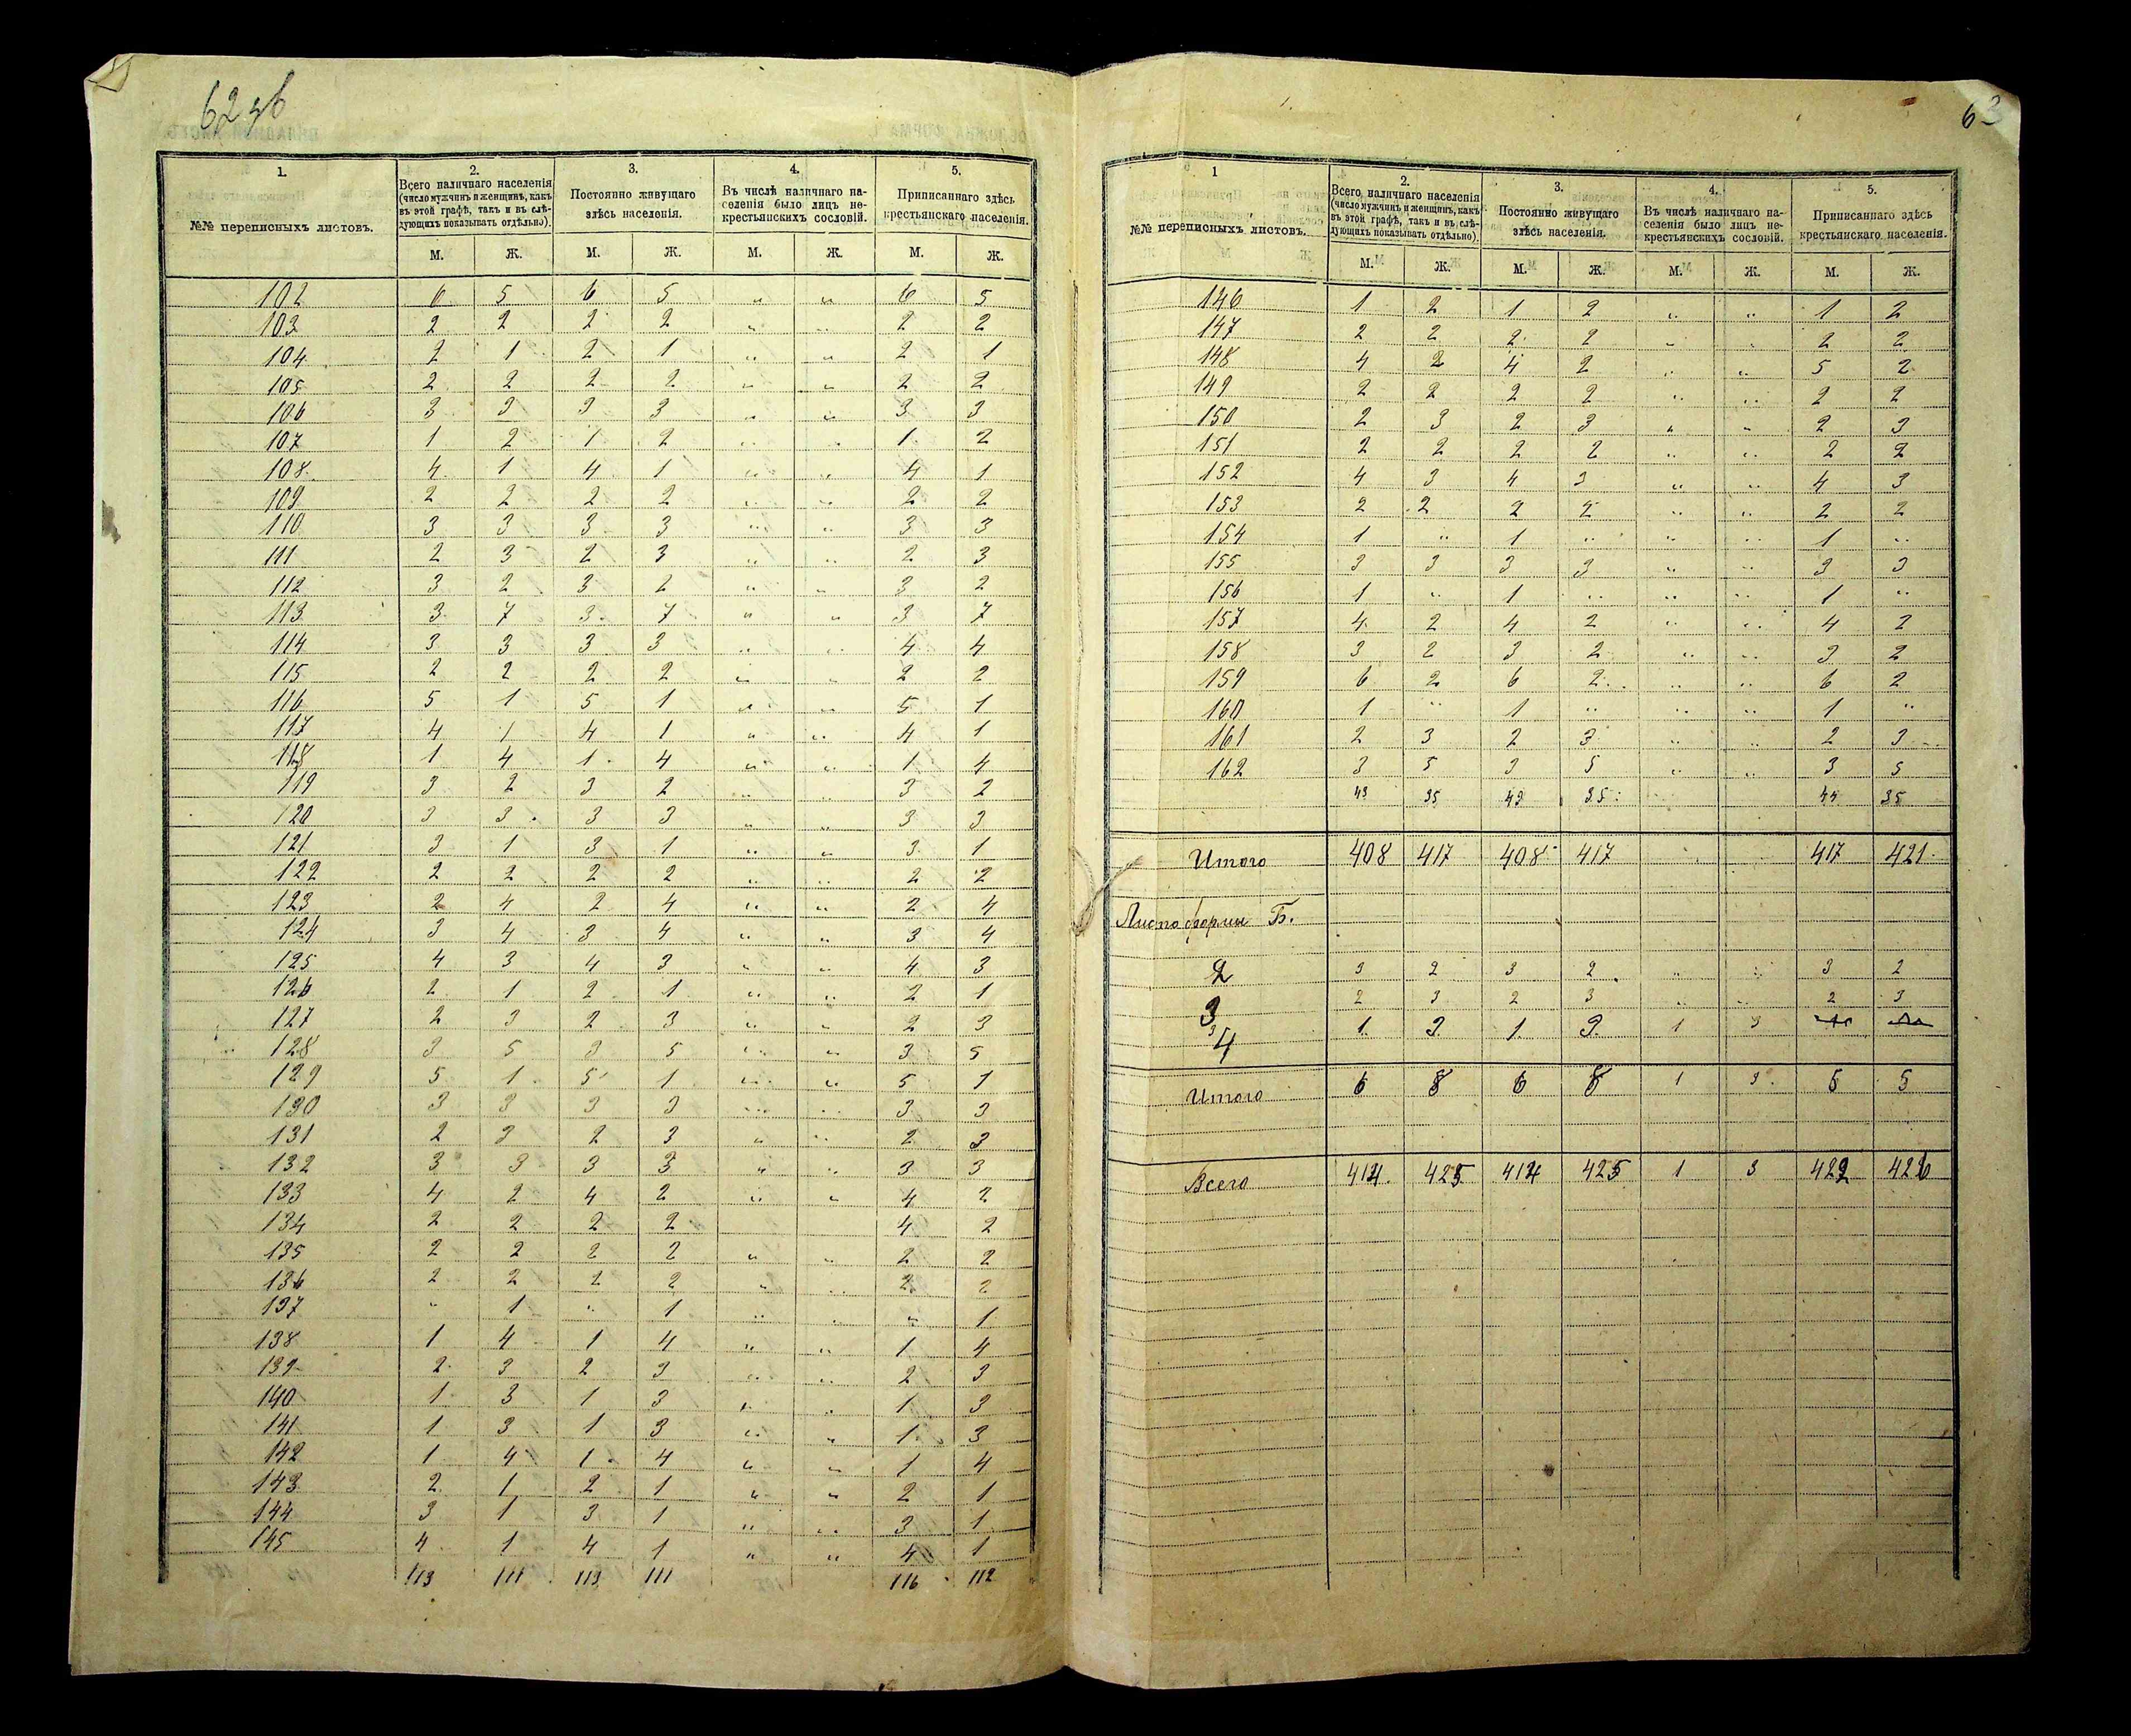 62 об
1. 2. 3. 4. 5.
№№ переписныхъ листовъ. Всего наличнаго населенія (число мужчинъ и женщинъ, какъ въ этой графѣ, такъ и въ слѣдующихъ показывать отдѣльно). Постоянно живущаго здѣсь населенія. Въ числѣ наличнаго населенія было лицъ некрестьянскихъ сословій. Приписаннаго здѣсь крестьянскаго населенія.
М. Ж. М. Ж. М. Ж. М. Ж.
102 6 5 6 5 " " 6 5
103 2 2 2 2 " " 2 2
104 2 1 2 1 " " 2 1
105 2 2 2 2 " " 2 2
106 3 3 3 3 " " 3 3
107 1 2 1 2 " " 1 2
108 4 1 4 1 " " 4 1
109 2 2 2 2 " " 2 2
110 3 3 3 3 " " 3 3
111 2 3 2 3 " " 2 3
112 3 2 3 2 " " 3 2
113 3 7 3 7 " " 3 7
114 3 3 3 3 " " 4 4
115 2 2 2 2 " " 2 2
116 5 1 5 1 " " 5 1
117 4 1 4 1 " " 4 1
118 1 4 1 4 " " 1 4
119 3 2 3 2 " " 3 2
120 3 3 3 3 " " 3 3
121 3 1 3 1 " " 3 1
122 2 2 2 2 " " 2 2
123 2 4 2 4 " " 2 4
124 3 4 3 4 " " 3 4
125 4 3 4 3 " " 4 3
126 2 1 2 1 " " 2 1
127 2 3 2 3 " " 2 3
128 3 5 3 5 " " 3 5
129 5 1 5 1 " " 5 1
130 3 3 3 3 " " 3 3
131 2 3 2 3 " " 2 3
132 3 3 3 3 " " 3 3
133 4 2 4 2 " " 4 2
134 2 2 2 2 4 2
135 2 2 2 2 " " 2 2
136 2 2 2 2 " " 2 2
137 " 1 " 1 " " " 1
138 1 4 1 4 " " 1 4
139 2 3 2 3 " " 2 3
140 1 3 1 3 " " 1 3
141 1 3 1 3 " " 1 3
142 1 4 1 4 " " 1 4
143 2 1 2 1 " " 2 1
144 3 1 3 1 " " 3 1
145 4 1 4 1 " " 4 1
113 111 113 111 116 112
63
1 2. 3. 4. 5.
№№ переписныхъ листовъ. Всего наличнаго населенія (число мужчинъ и женщинъ, какъ въ этой графѣ, такъ и въ слѣдующихъ показывать отдѣльно). Постоянно живущаго здѣсь населенія. Въ числѣ наличнаго населенія было лицъ некрестьянскихъ сословій. Приписаннаго здѣсь крестьянскаго населенія.
М. Ж. М. Ж. М. Ж. М. Ж.
146 1 2 1 2 " " 1 2
147 2 2 2 2 " " 2 2
148 4 2 4 2 " " 5 2
149 2 2 2 2 " " 2 2
150 2 3 2 3 " " 2 3
151 2 2 2 2 " " 2 2
152 4 3 4 3 " " 4 3
153 2 2 2 2 " " 2 2
154 1 " 1 " " " 1 "
155 3 3 3 3 " " 3 3
156 1 " 1 " " " 1 "
157 4 2 4 2 " " 4 2
158 3 2 3 2 " " 3 2
159 6 2 6 2 " " 6 2
160 1 " 1 " " " 1 "
161 2 3 2 3 " " 2 3
162 3 5 3 5 " " 3 5
43 35 43 35 44 35
Итого 408 417 408 417 417 421
Листа формы Б.
2 3 2 3 2 " " 3 2
3 2 3 2 3 " " 2 3
4 1 3 1 3 1 3
Итого 6 8 6 8 1 3 5 5
Всего 414 425 414 425 1 3 422 426